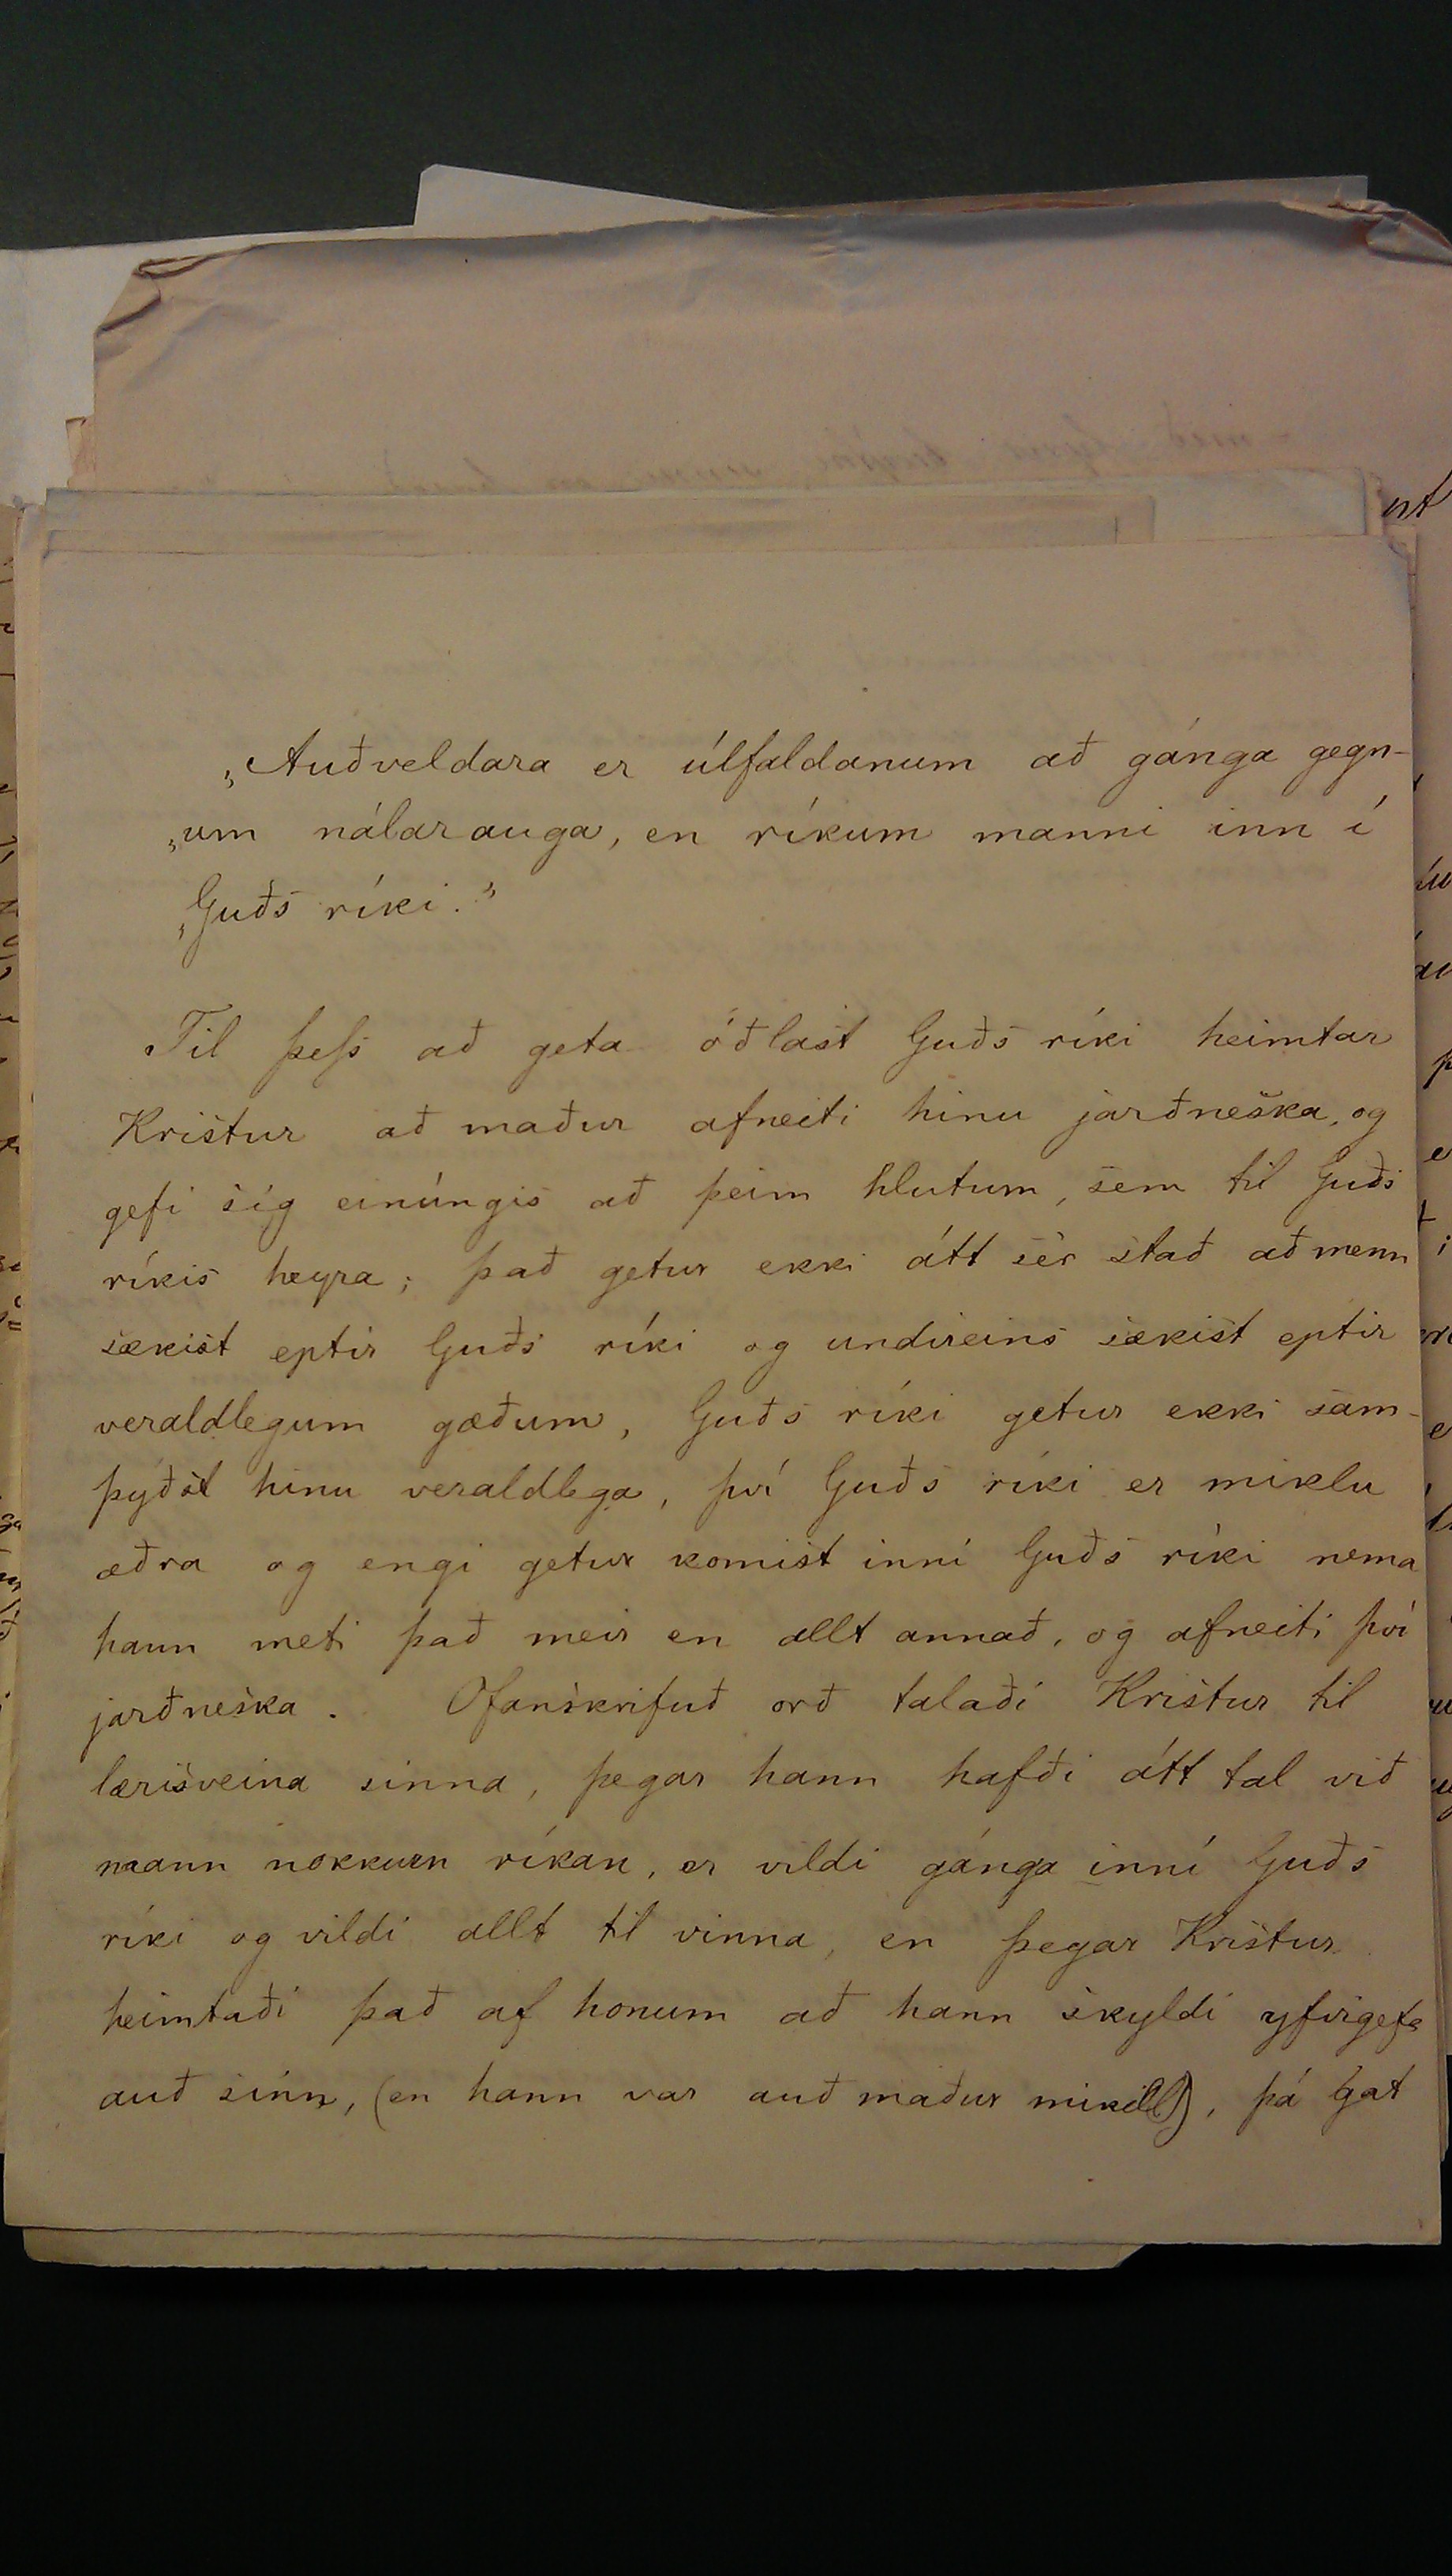 „Auðveldara er úlfaldanum að gánga gegn-
„um nálarauga, en ríkum manni inn í
„Guðs ríki.”
Til þeſs að geta óðlast Guðs ríki heimtar
Kristur að maður afneiti hinu jarðneska, og
gefi sig einúngis að þeim hlutum, sem til Guðs
ríkis heyra; það getur ekki átt sér stað að menn
sækist eptir Guðs ríki og undireins sækist eptir
veraldlegum gæðum, Guðs ríki getur ekki sam-
þýðst hinu veraldlega, því Guðs ríki er miklu
æðra og engi getur komist inní Guðs ríki nema
hann meti það meir en allt annað, og afneiti því
jarðneska. Ofanskrifuð orð talaði Kristur til
lærisveina sinna, þegar hann hafði átt tal við
mann nokkurn ríkan, er vildi gánga inní Guðs
ríki og vildi allt til vinna, en þegar Kristur
heimtaði það af honum að hann skyldi yfirgefa
auð sinn, (en hann var auð maður mikill), þá gat